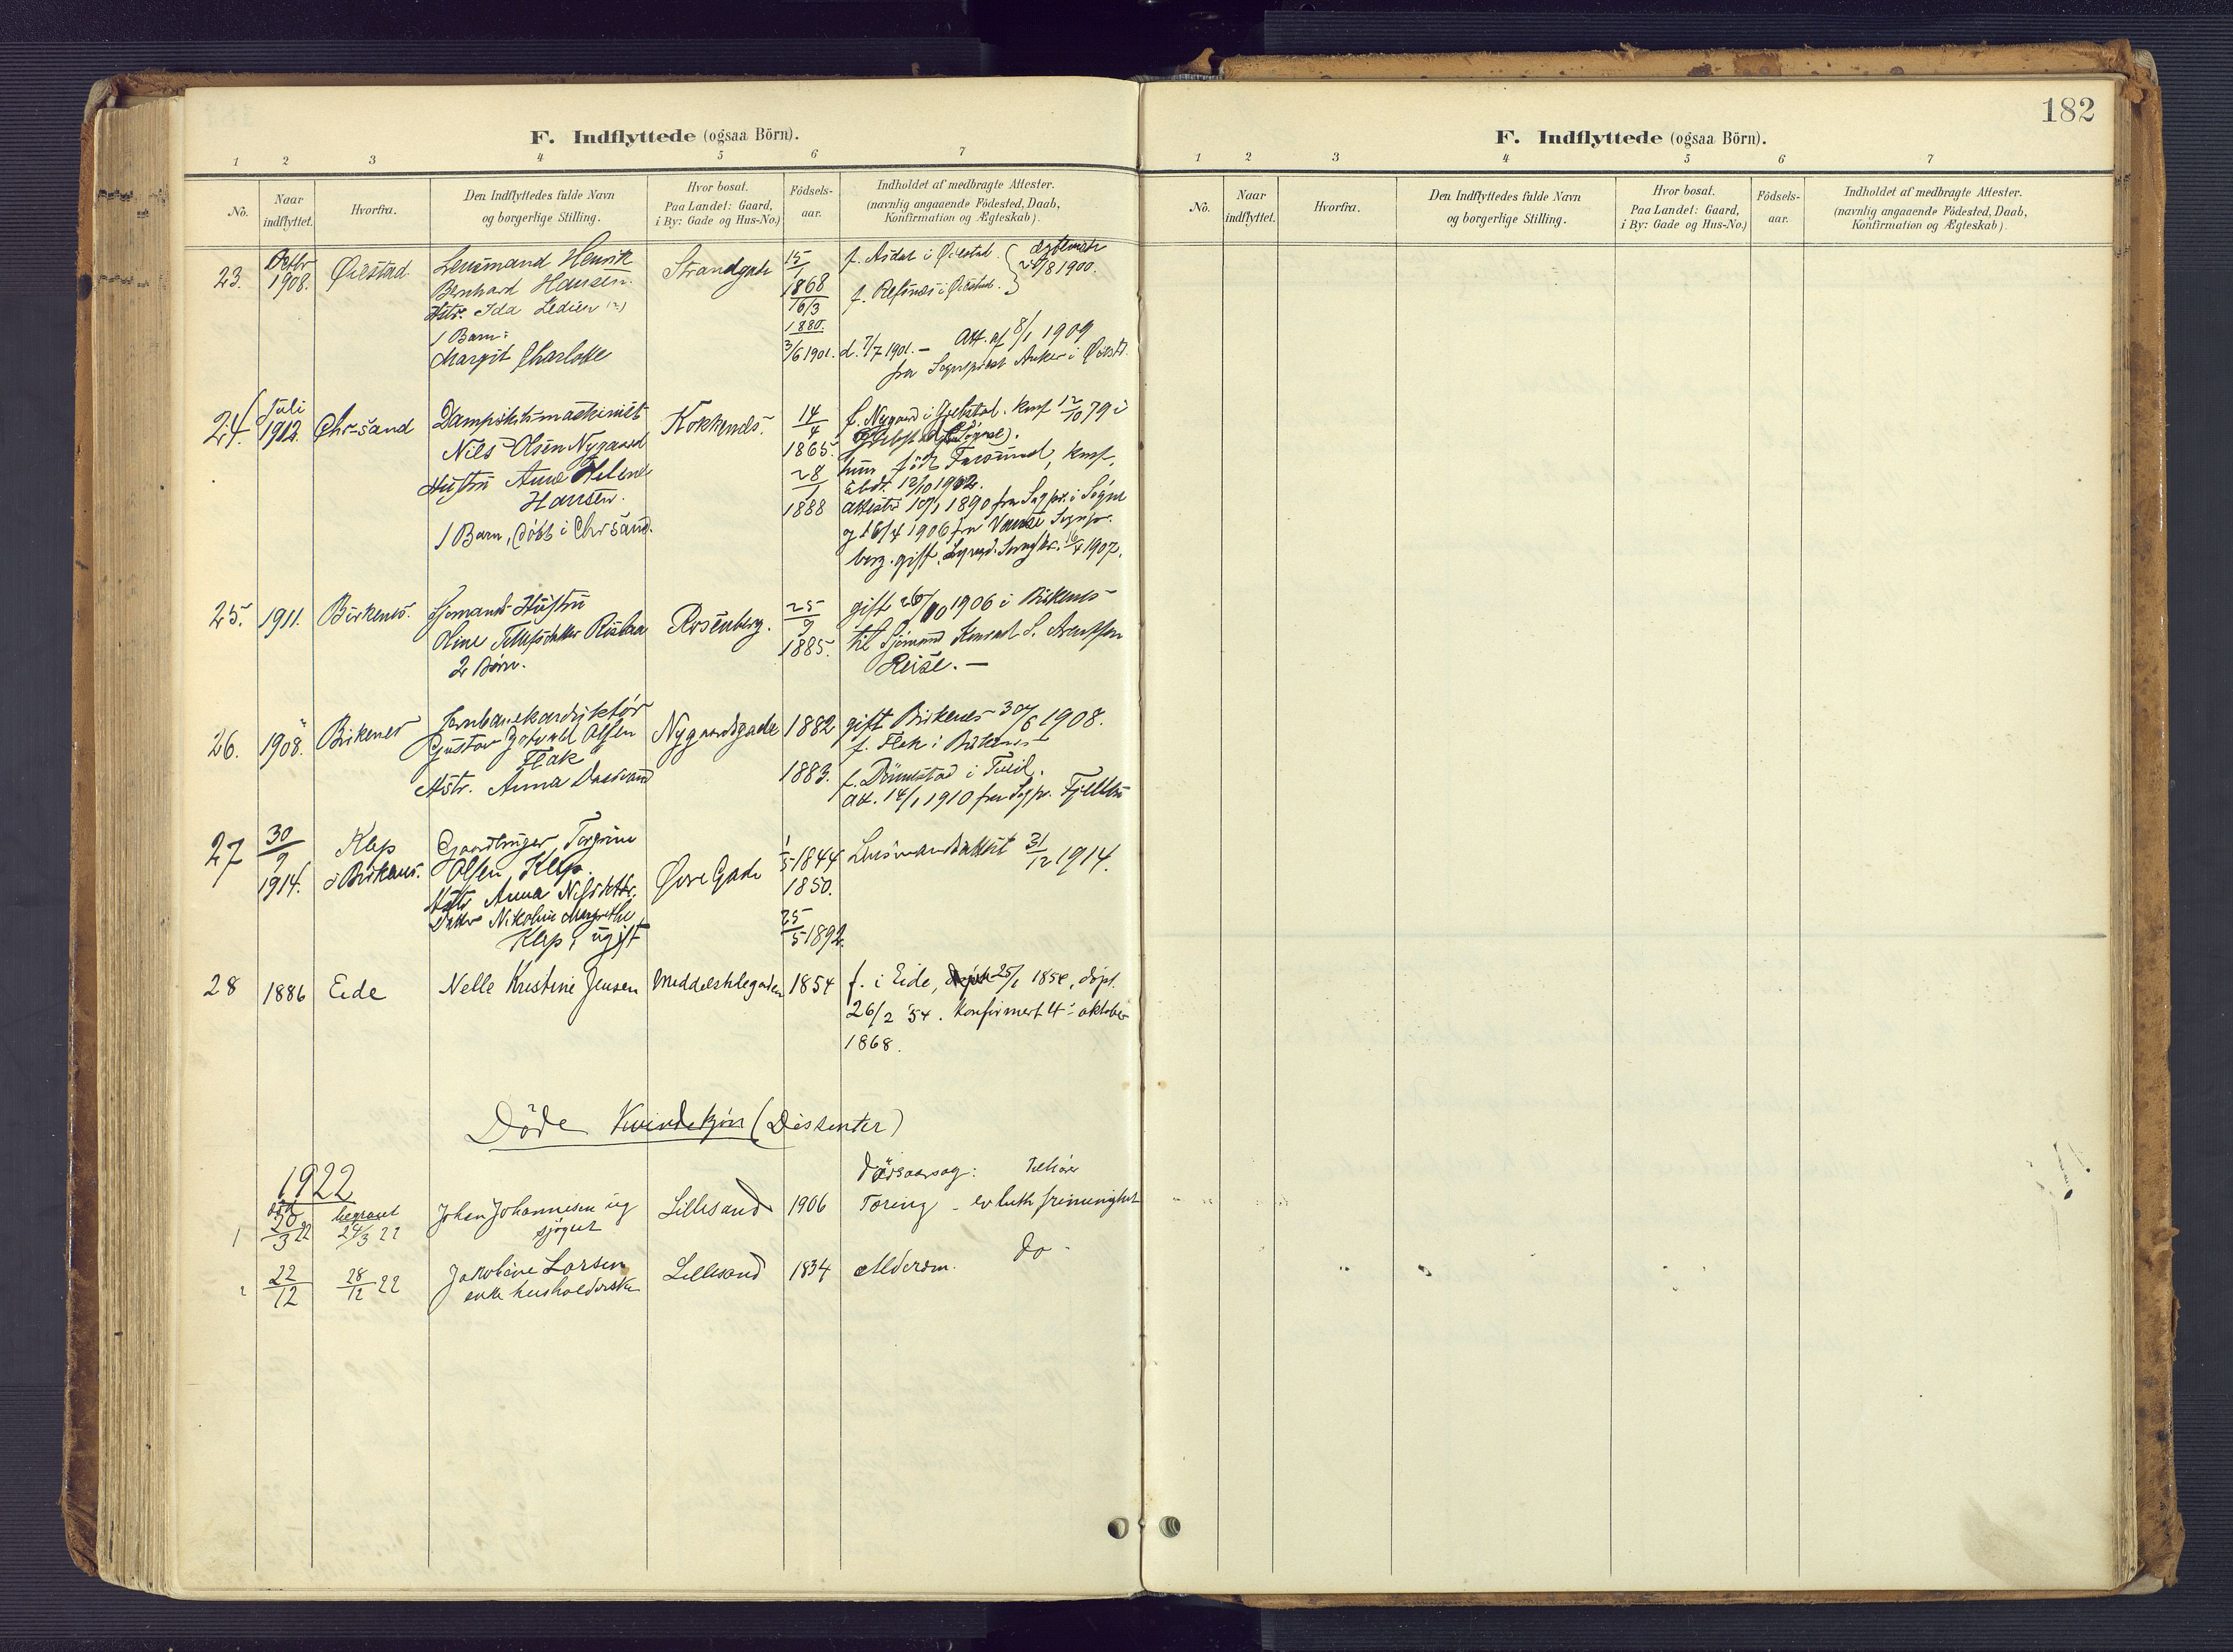 F. Indflyttede (ogsaa Börn).
1 2 3 4 5 6 7
No. Naar indflyttet. Hvorfra. Den Indflyttedes fulde Navn og borgerlige Stilling. Hvor bosat. Paa Landet: Gaard, i By: Gade og Hus-No.) Födsels-aar. Indholdet af medbragte Attester. (navnlig angaaende Födested, Daab, Konfirmation og Ægteskab).
23. Oktbr 1908. Øiestad Lensmand Henrik Strandgade 15/1 1868 f. Asdal i Øiestad.
Bernhard Hansen.
Hstr. Ida 16/3 1880. f. i Øiestad. 8 1900.
1 Barn:
Margit Charlotte 3/6 1901. d. 7/7 1901. — Att. af 8/1 1909
fra Sogneprest Anker i Øiest.
24. Juli 1912. Chr-sand Dampskibsmaskinist Kokkenes. 14/4 1865. f. Nygaard i . Konf 12/10 79 i
Nils Olsen Nygaard
Hustru Anne Helene 28/1 1888 født , konf.
Hansen. 12/10 1902.
1890 fra i Søgne
1 Barn, døbt i Chrsand. 1906 fra Vanse
borg. gift. 16/4 1907.
25. 1911. Birkenes. Sjømands Hustru Rosenberg. 25/9 1885. gift 26/10 1906 i Birkenes
Line Rislaa til Sjömand Konrad S.
2 Børn. Reise. —
26. 1908. Birkenes Jernbanekonduktör Nygaardsgade 1882 gift Birkenes 30/6 1908.
Gustav Olsen f. Flak i Birkenes
Flak
Hstr. Anna 1883. f. i
att. 14/1 1910 fra Sogpr.
27 30/9 1914. Klep i Birkenes. Gaardbruger Torgrim Øvre Gade 1/5 1844 Lensmandsattest 31/12 1914.
Olsen Klep.
Hstr Anna 1850.
Datter Nikoline Margrethe 25/5 1892
Klep, ugift
28 1886 Eide Nelle Kristine Jensen Meddelskolegaden 1854 f. i Eide, 25/1 1854, döpt.
26/2 54. Konfirmert 4 oktober
1868.
Döde Kvindekjön (Dissenter)
1922 Dödsaarsag: Tilhører
död begravet
1 20/3 22 24/3 22 Johan Johannesen ug Lillesand 1906 Tæring - ev luth frimenighet
sjögut
2 22/12 28/12 22 Jakobine Larsen Lillesand 1834 Alderdom. do -
enke husholderske
182
F. Indflyttede (ogsaa Börn).
1 2 3 4 5 6 7
No. Naar indflyttet. Hvorfra. Den Indflyttedes fulde Navn og borgerlige Stilling. Hvor bosat. Paa Landet: Gaard, i By: Gade og Hus-No.) Födsels-aar. Indholdet af medbragte Attester. (navnlig angaaende Födested, Daab, Konfirmation og Ægteskab).